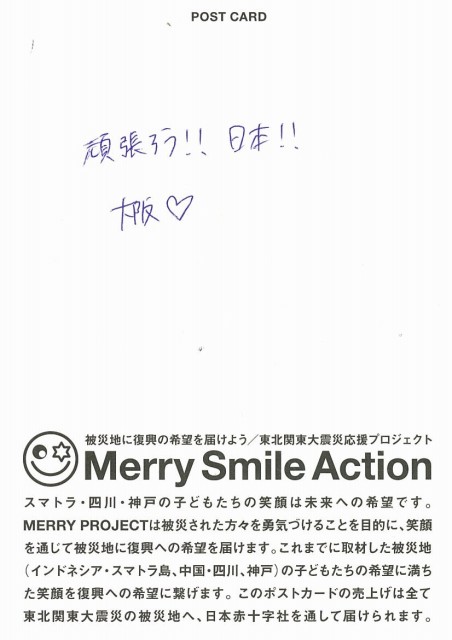 POST CARD
頑張ろう!! 日本!!
大阪♡
被災地に復興の希望を届けよう／東北関東大震災応援プロジェクト
Merry Smile Action
スマトラ・四川・神戸の子どもたちの笑顔は未来への希望です。
MERRY PROJECTは被災された方々を勇気づけることを目的に、笑顔
を通じて被災地に復興への希望を届けます。これまでに取材した被災地
（インドネシア・スマトラ島、中国・四川、神戸）の子どもたちの希望に満ち
た笑顔を復興への希望に繋げます。このポストカードの売上げは全て
東北関東大震災の被災地へ、日本赤十字社を通して届けられます。